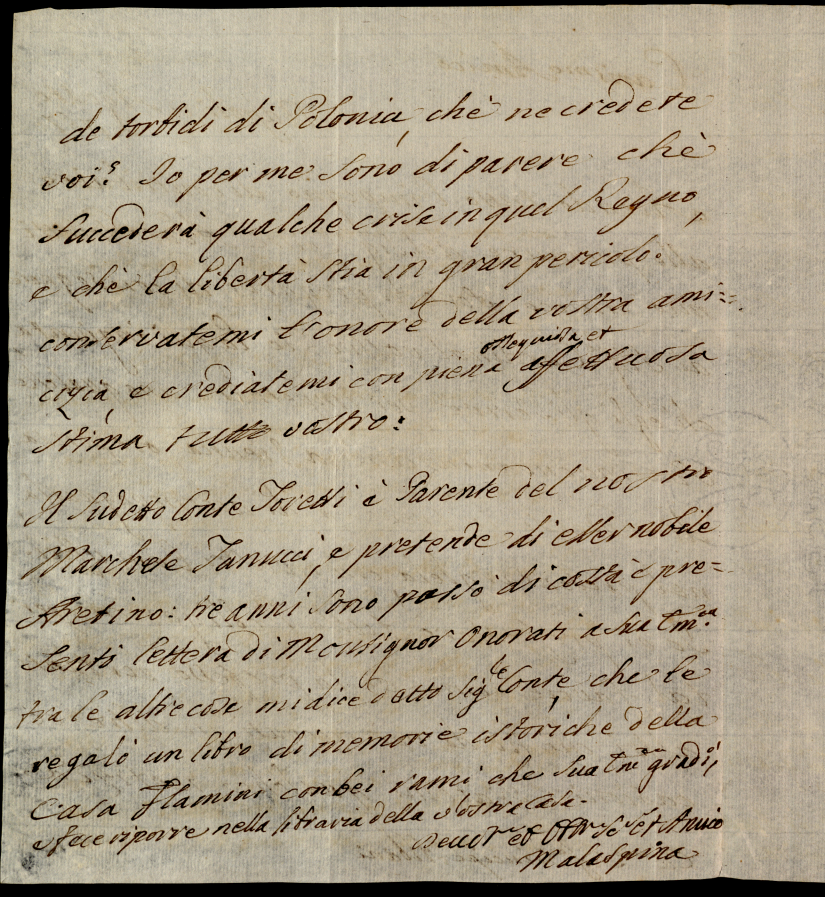 de torbidi di Polonia, chè ne credete
voi? Io per me sono di parere chè
succederà qualche crise in quel Regno,
e chè la libertà stia in gran pericolo.
conservatemi l'onore della vostra ami=
cizia e crediatemi con piena ossequiosa et affettuosa
stima tutto vostro:
Il sudetto Conte Toretti è Parente del nostro
Marchese Tanucci, e pretende di esser nobile
Aretino: tre anni sono passò di costà e pre=
sentò lettera di Monsignor Onorati a sua Em.za
tra le altre cose mi dice detto Sig.le Conte, che le
regalò un libro di memorie istoriche della
Casa Flamini con bei rami che sua Em.za gradì,
e fece riporre nella libraria della vostra Casa.
et Amico
Malaspina